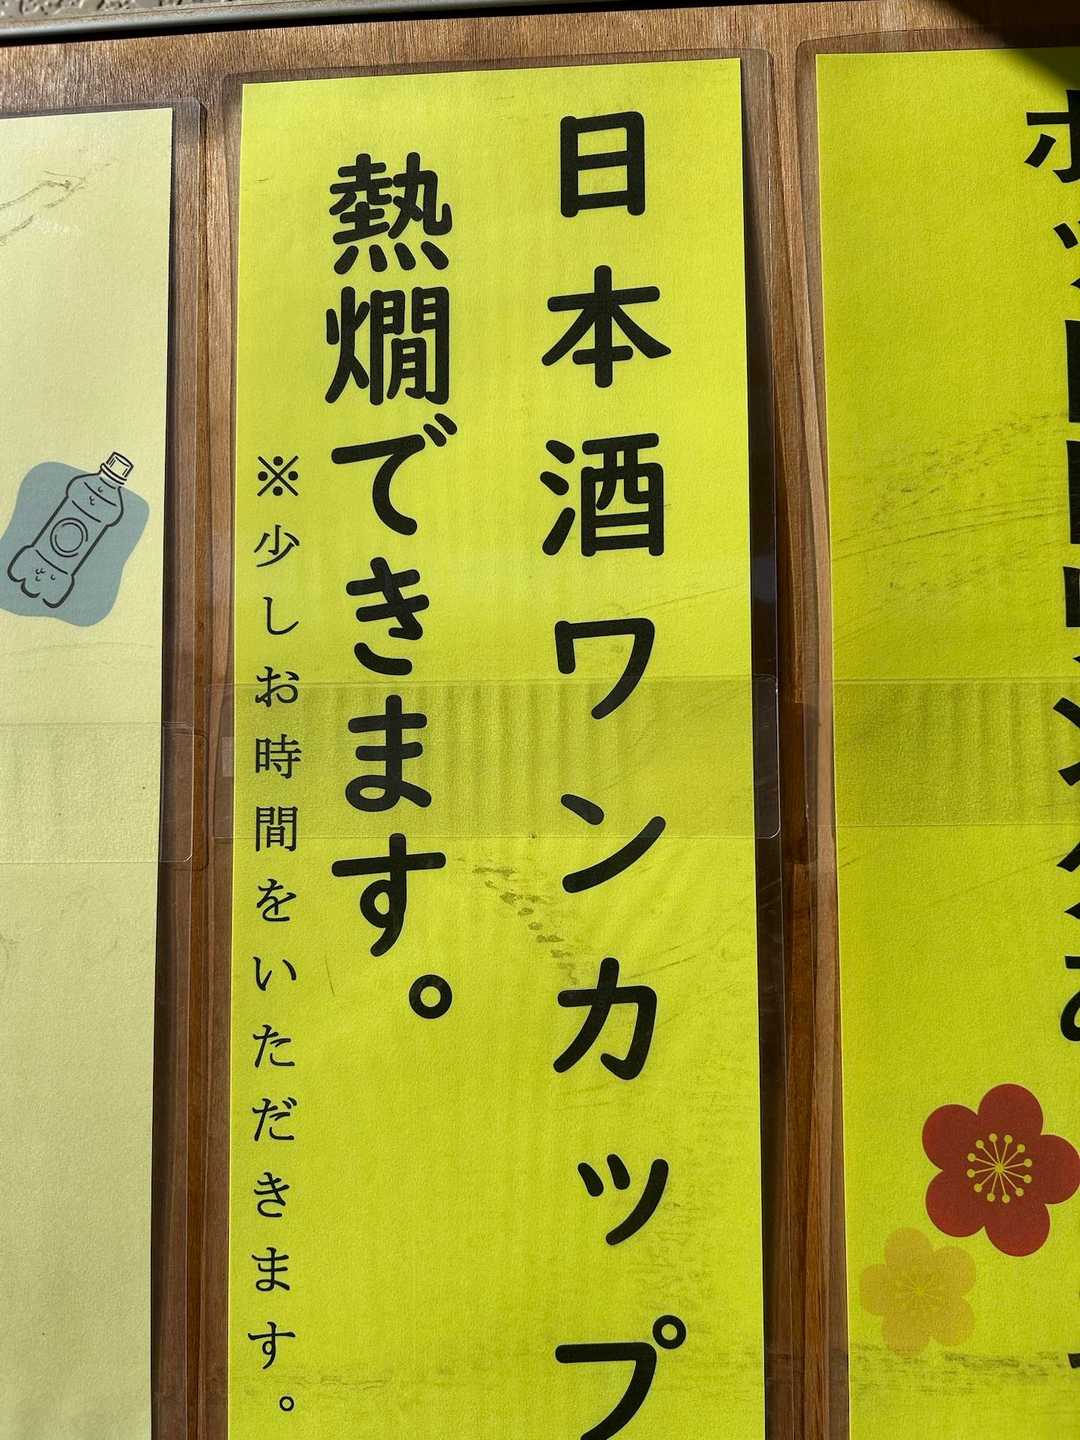 日本酒ワンカップ
熱燗できます。
※少しお時間をいただきます。